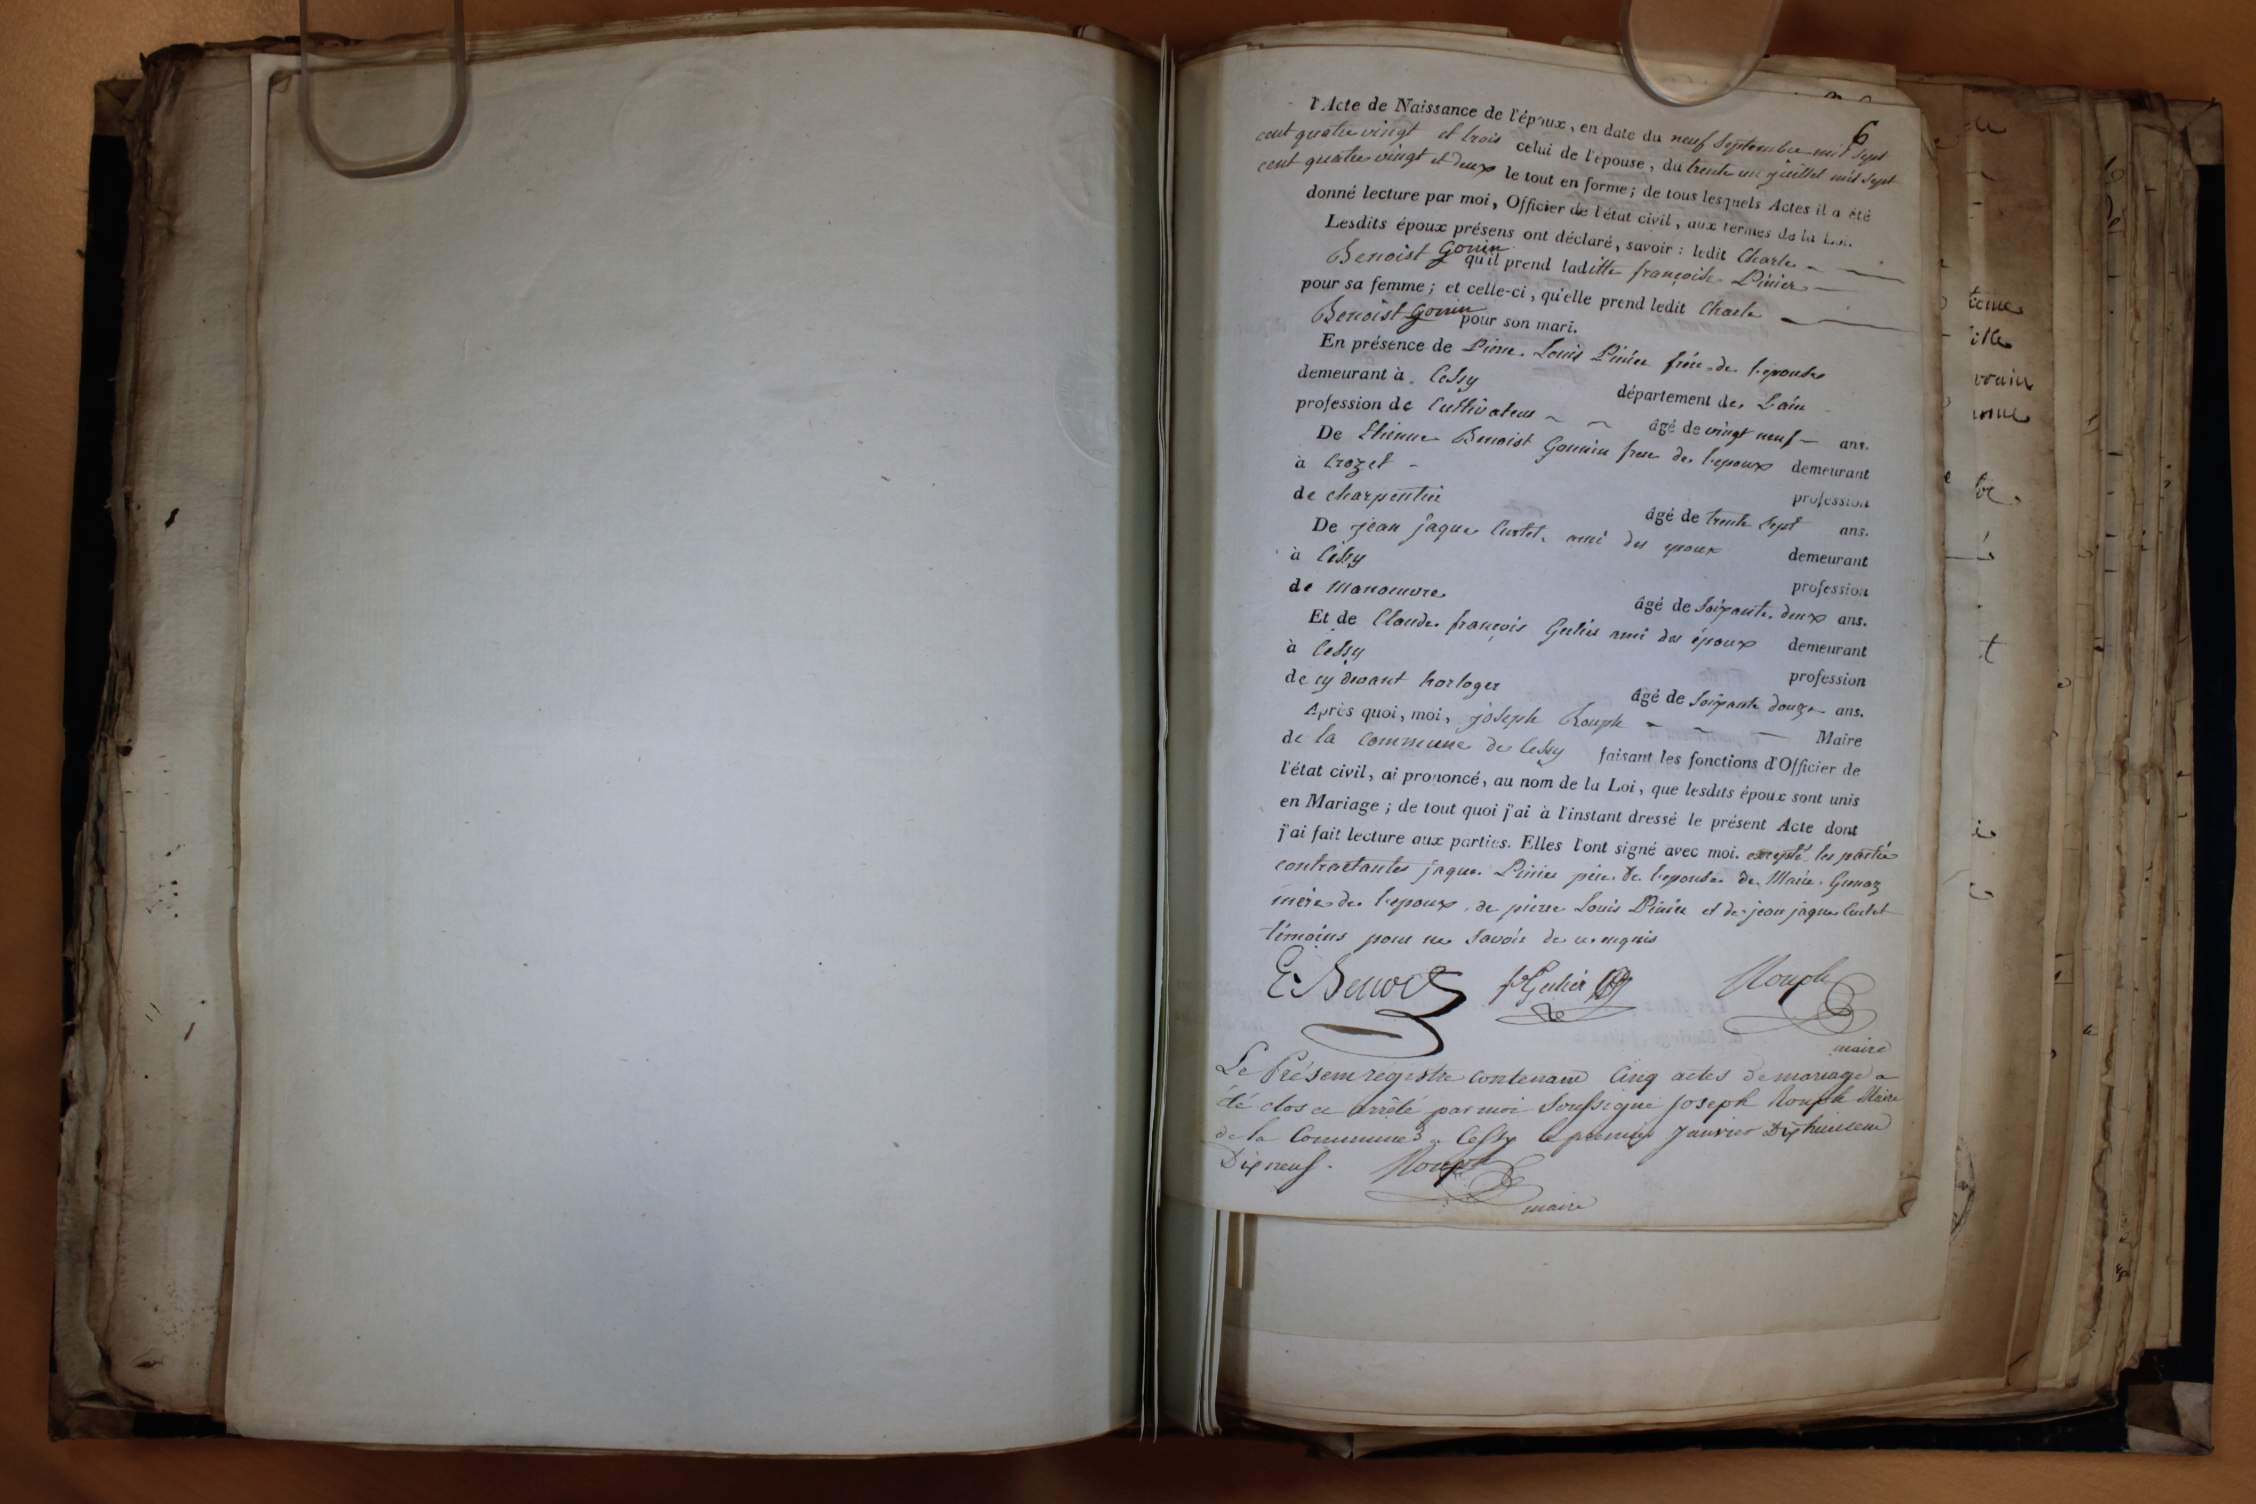 6
l'Acte de Naissance de l'époux, en date du neuf Septembre mil sept
cent quatre vingt et trois celui de l'épouse, du trente un juillet mil sept
cent quatre vingt et deux le tout en forme; de tous lesquels Actes il a été
donné lecture par moi, Officier de l'état civil, aux termes de la Loi.
Lesdits époux présens ont déclaré, savoir: ledit Charle
Benoist Gonin qu'il prend laditte françoise Pinier
pour sa femme; et celle-ci, qu'elle prend ledit Charle
Benoist Gonin pour son mari.
En présence de Pierre Louis Pinier frère de l'epouse
demeurant à Cessy département de Lain
profession de Cultivateur âgé de vingt neuf ans.
De Etienne Benoist Gonnin frere de l'epoux demeurant
à Crozet profession
de charpentier âgé de trente Sept ans.
De jean jaque Curtet ami des epoux demeurant
à Cessy profession
de manoeuvre âgé de Soixante deux ans.
Et de Claude françois Gulier ami des époux demeurant
à Cessy profession
de cy devant horloger âgé de Soixante douze ans.
Après quoi, moi, joseph Rouph Maire
de la commune de Cessy faisant les fonctions d'Officier de
l'état civil, ai prononcé, au nom de la Loi, que lesdits époux sont unis
en Mariage; de tout quoi j'ai à l'instant dressé le présent Acte dont
j'ai fait lecture aux parties. Elles l'ont signé avec moi. excepté les partie
contractantes jaque Pinier père de l'epouse de Marie
mère de l'epoux, de pierre Louis Pinier et de jean jaque Curtet
témoins pour ne Savoir de ce enquis
E. Benoit Gulier Rouph
maire
Le Présent registre contenant Cinq actes de mariage a
été clos et arrêté par moi Soussigné joseph Rouph Maire
de la Commune de Cessy le premier Janvier Dix huit cent
Dix neuf. Rouph
maire